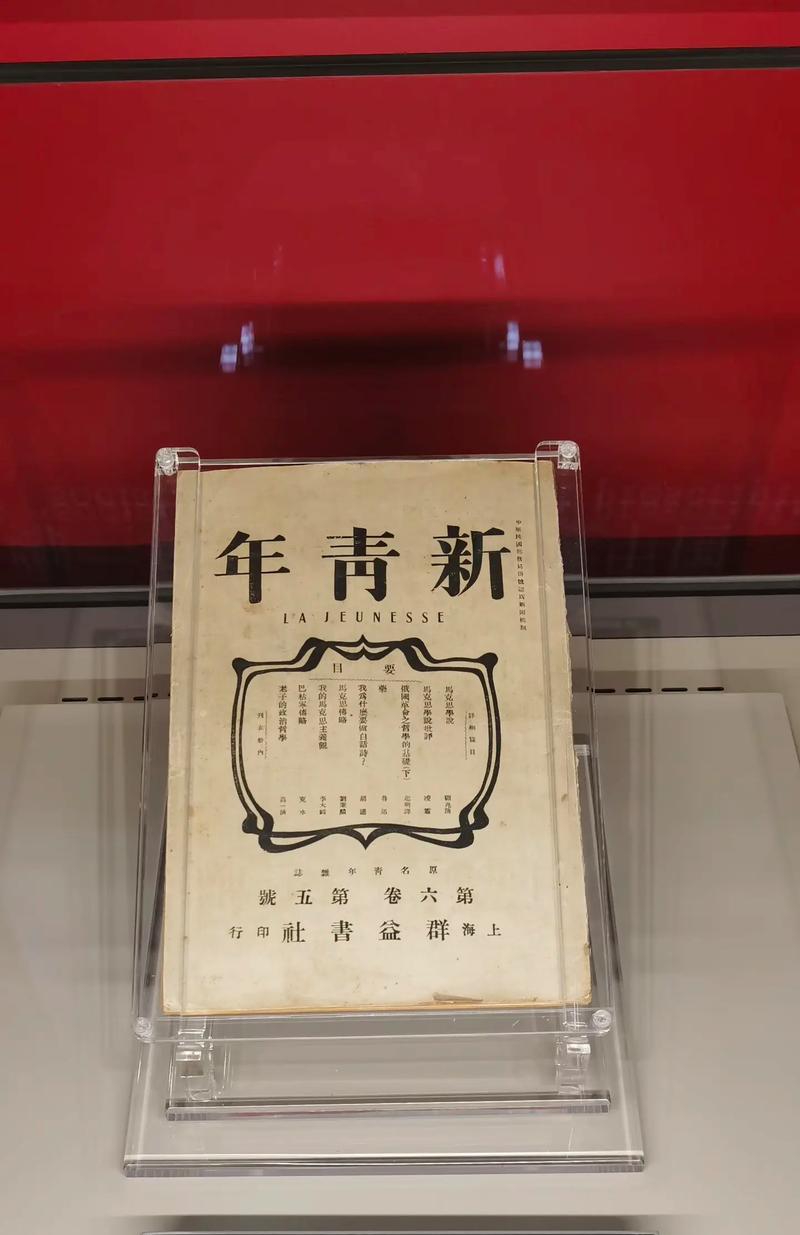 新青年
LA JEUNESSE
要目
詳細篇目
馬克思學說 顧兆熊
馬克思學說批評 凌霜
俄國革命之哲學的基礎(下) 起明譯
藥 魯迅
我爲什麼要做白話詩? 胡適
馬克思傳略 劉秉麟
我的馬克思主義觀 李大釗
巴枯寧傳略 克水
老子的政治哲學 高一涵
列在册內
原名靑年雜誌
第六卷第五號
上海群益書社印行